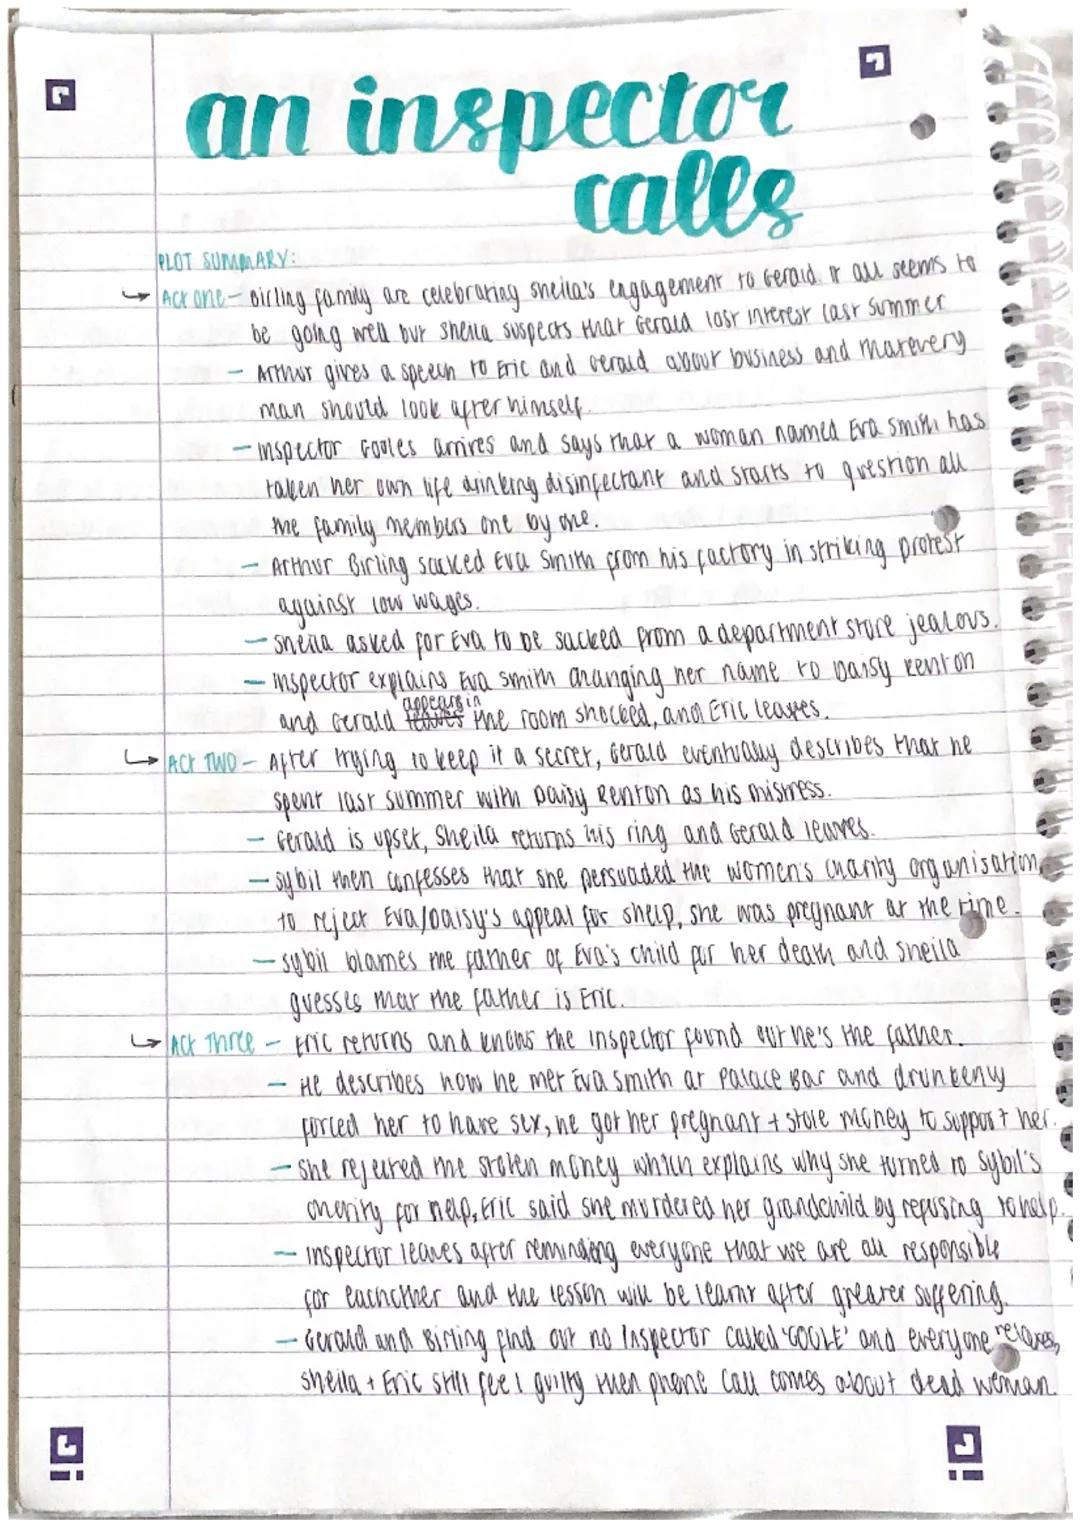 an inspector
calls
PLOT SUMMARY:
↳ Act one – Birling family are celebrating Sheila's engagement to Gerald. It all seems to
be going well but Sheila suspects that Gerald lost interest last summer
– Arthur gives a speech to Eric and Gerald about business and that every
man should look after himself.
– Inspector Gooles arrives and says that a woman named Eva Smith has
taken her own life drinking disinfectant and starts to question all
the family members one by one.
– Arthur Birling sacked Eva Smith from his factory in striking protest
against low wages.
– Sheila asked for Eva to be sacked from a department store jealous.
– Inspector explains Eva Smith changing her name to Daisy Renton
and Gerald appears in the room shocked, and Eric leaves.
↳ Act TWO – After trying to keep it a secret, Gerald eventually describes that he
spent last summer with Daisy Renton as his mistress.
– Gerald is upset, Sheila returns his ring and Gerald leaves.
– Sybil then confesses that she persuaded the women's charity organisation
to reject Eva/Daisy's appeal for shelp, she was pregnant at the time.
– Sybil blames the father of Eva's child for her death and Sheila
guesses that the father is Eric.
↳ Act Three – Eric returns and knows the inspector found out he's the father.
– He describes how he met Eva Smith at Palace Bar and drunkenly
forced her to have sex, he got her pregnant + stole money to support her.
– She rejected the stolen money which explains why she turned to Sybil's
charity for help, Eric said she murdered her grandchild by refusing to help.
– Inspector leaves after reminding everyone that we are all responsible
for eachother and the lesson will be learnt after greater suffering.
– Gerald and Birling find out no Inspector called 'GOOLE' and everyone relaxes,
Sheila + Eric still feel guilty then phone call comes about dead woman.